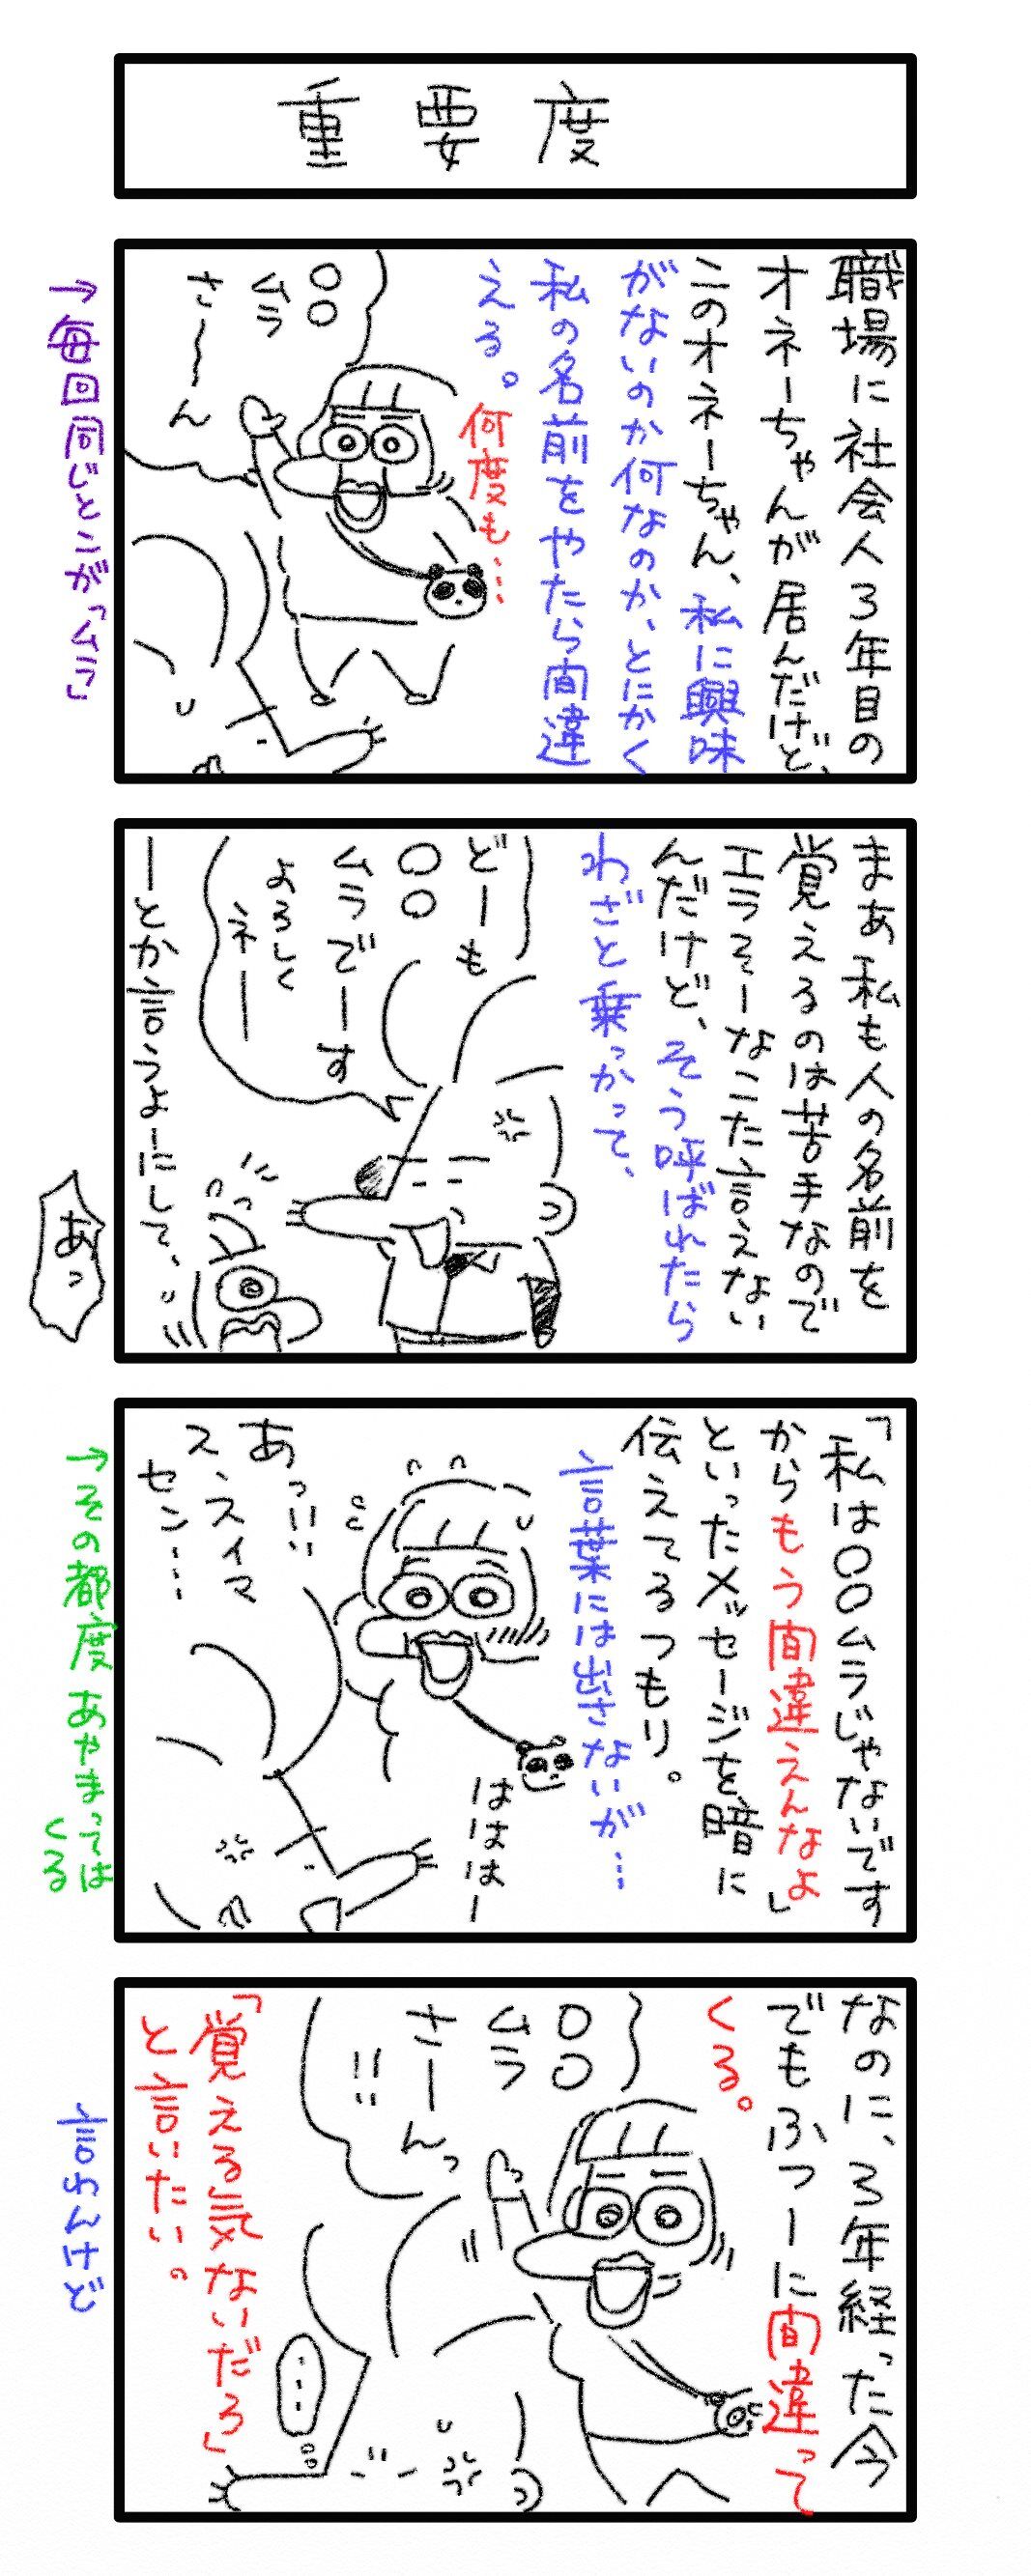 重要度
職場に社会人3年目の
オネーちゃんが居んだけど、
このオネーちゃん、私に興味
がないのか何なのか、とにかく
私の名前をやたら間違
える。何度も…
〇〇
ムラ
さ〜ん
→毎回同じとこが「ムラ」
まあ私も人の名前を
覚えるのは苦手なので
エラそーなこた言えない
んだけど、そう呼ばれたら
わざと乗っかって、
どーも
〇〇
ムラでーす
よろしく
ネー
ーとか言うよーにして、
あっ
「私は〇〇ムラじゃないです
からもう間違えんなよ」
といったメッセージを暗に
伝えてるつもり。
言葉には出さないが…
ははは−
あっ!!
ス、スイマ
セン…
→その都度あやまっては
くる
なのに、3年経った今
でもふつーに間違って
くる。
〇〇
ムラ
さーんっ
!!
…
「覚える気ないだろ」
と言いたい。
言わんけど